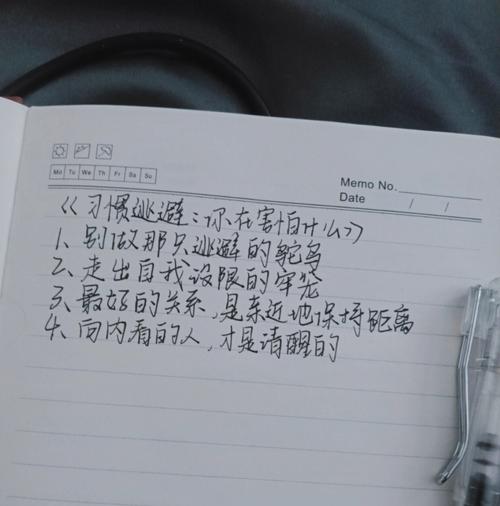 Mo Tu We Th Fr Sa Su
Memo No.
Date / /
《习惯逃避：你在害怕什么》
1、别做那只逃避的鸵鸟
2、走出自我设限的牢笼
3、最好的关系，是亲近地保持距离
4、向内看的人，才是清醒的